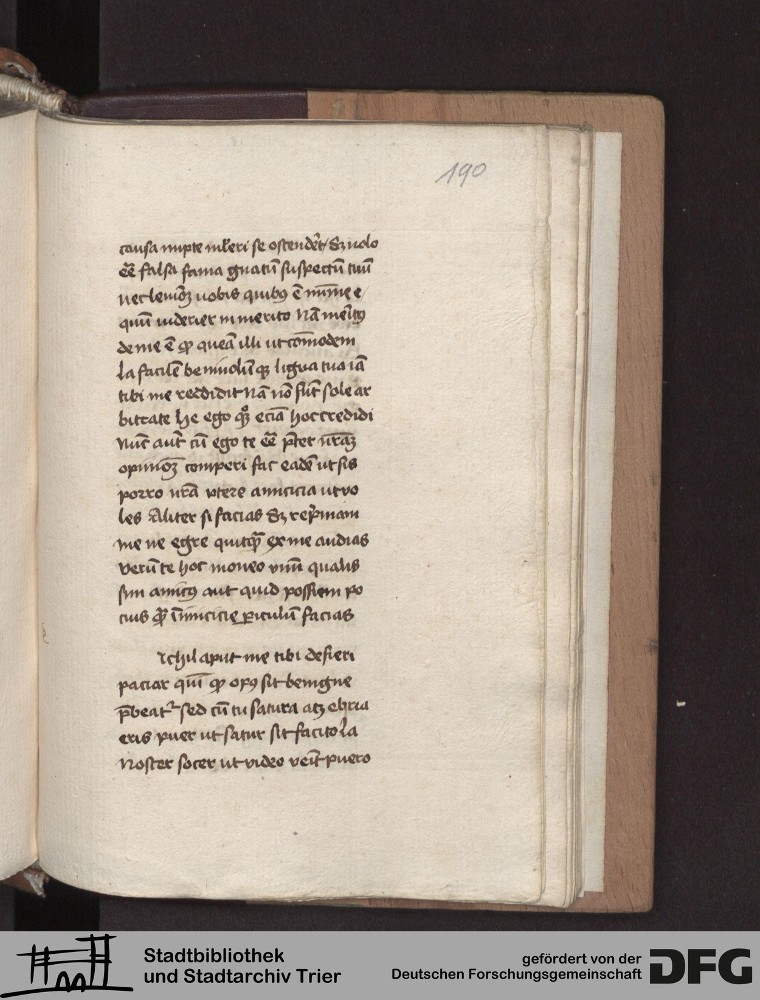 190
causa nupte mulieri se ostenderet Sz uolo
eē falsa fama gnatū suspectū tuū
nec leniorē uobis quibus ē minime e
quū uiderier inmerito Nā meritū
de me ē qp queā illi ut comodem
La facilē beniuolūqz ligua tua iā
tibi me reddidit Nā nō sūt sole ar
bitrate he ego qzoqz eciā hoc credidi
Nūc aut cū ego te eē pter nrāz
opinionē comperi fac eadē ut sis
porro nrā vtere amicicia ut vo
les Aliter si facias Sz reprimam
me ne egre quitqz ex me audias
Verū te hoc moneo vnū qualis
sim amicus aut quid possiem po
cius qz inimicicie periculū facias
Nchil aput me tibi defieri
paciar qui qp opus sit benigne
prebeatur sed cū tu satura atqz ebria
eris puer ut satur sit facito La
Noster socer ut video venit puero
Stadtbibliothek
und Stadtarchiv Trier
gefördert von der
Deutschen Forschungsgemeinschaft
DFG